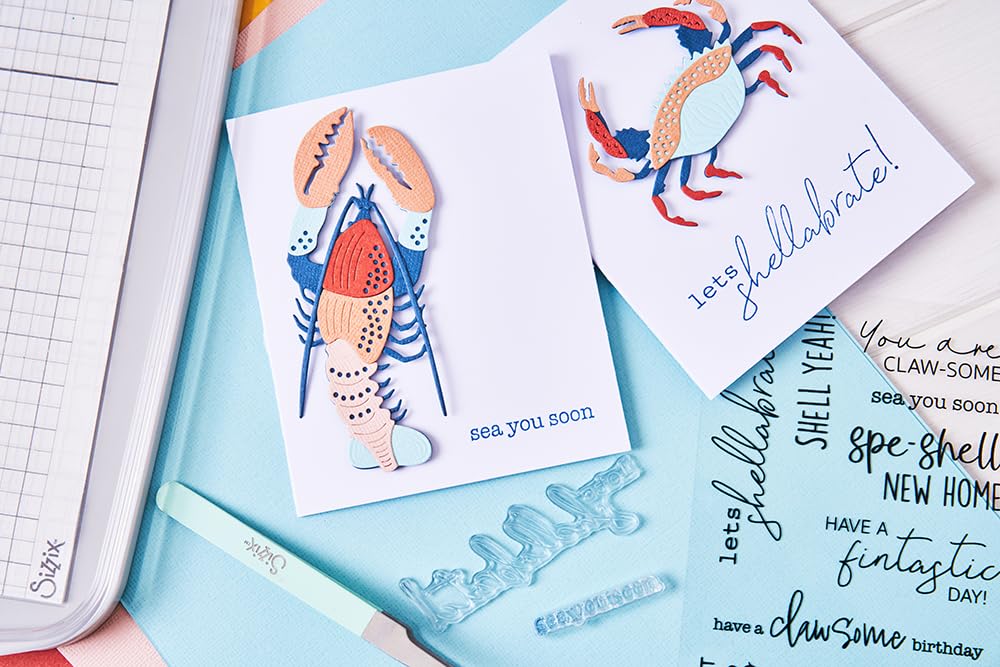 sea you soon
lets shellabrate!
Sizzix
Sizzix
lets shellabrate
SHELL YEAH!
You are
CLAW-SOME
sea you soon
spe-shell
NEW HOME
HAVE A
fintastic
DAY!
have a clawsome birthday